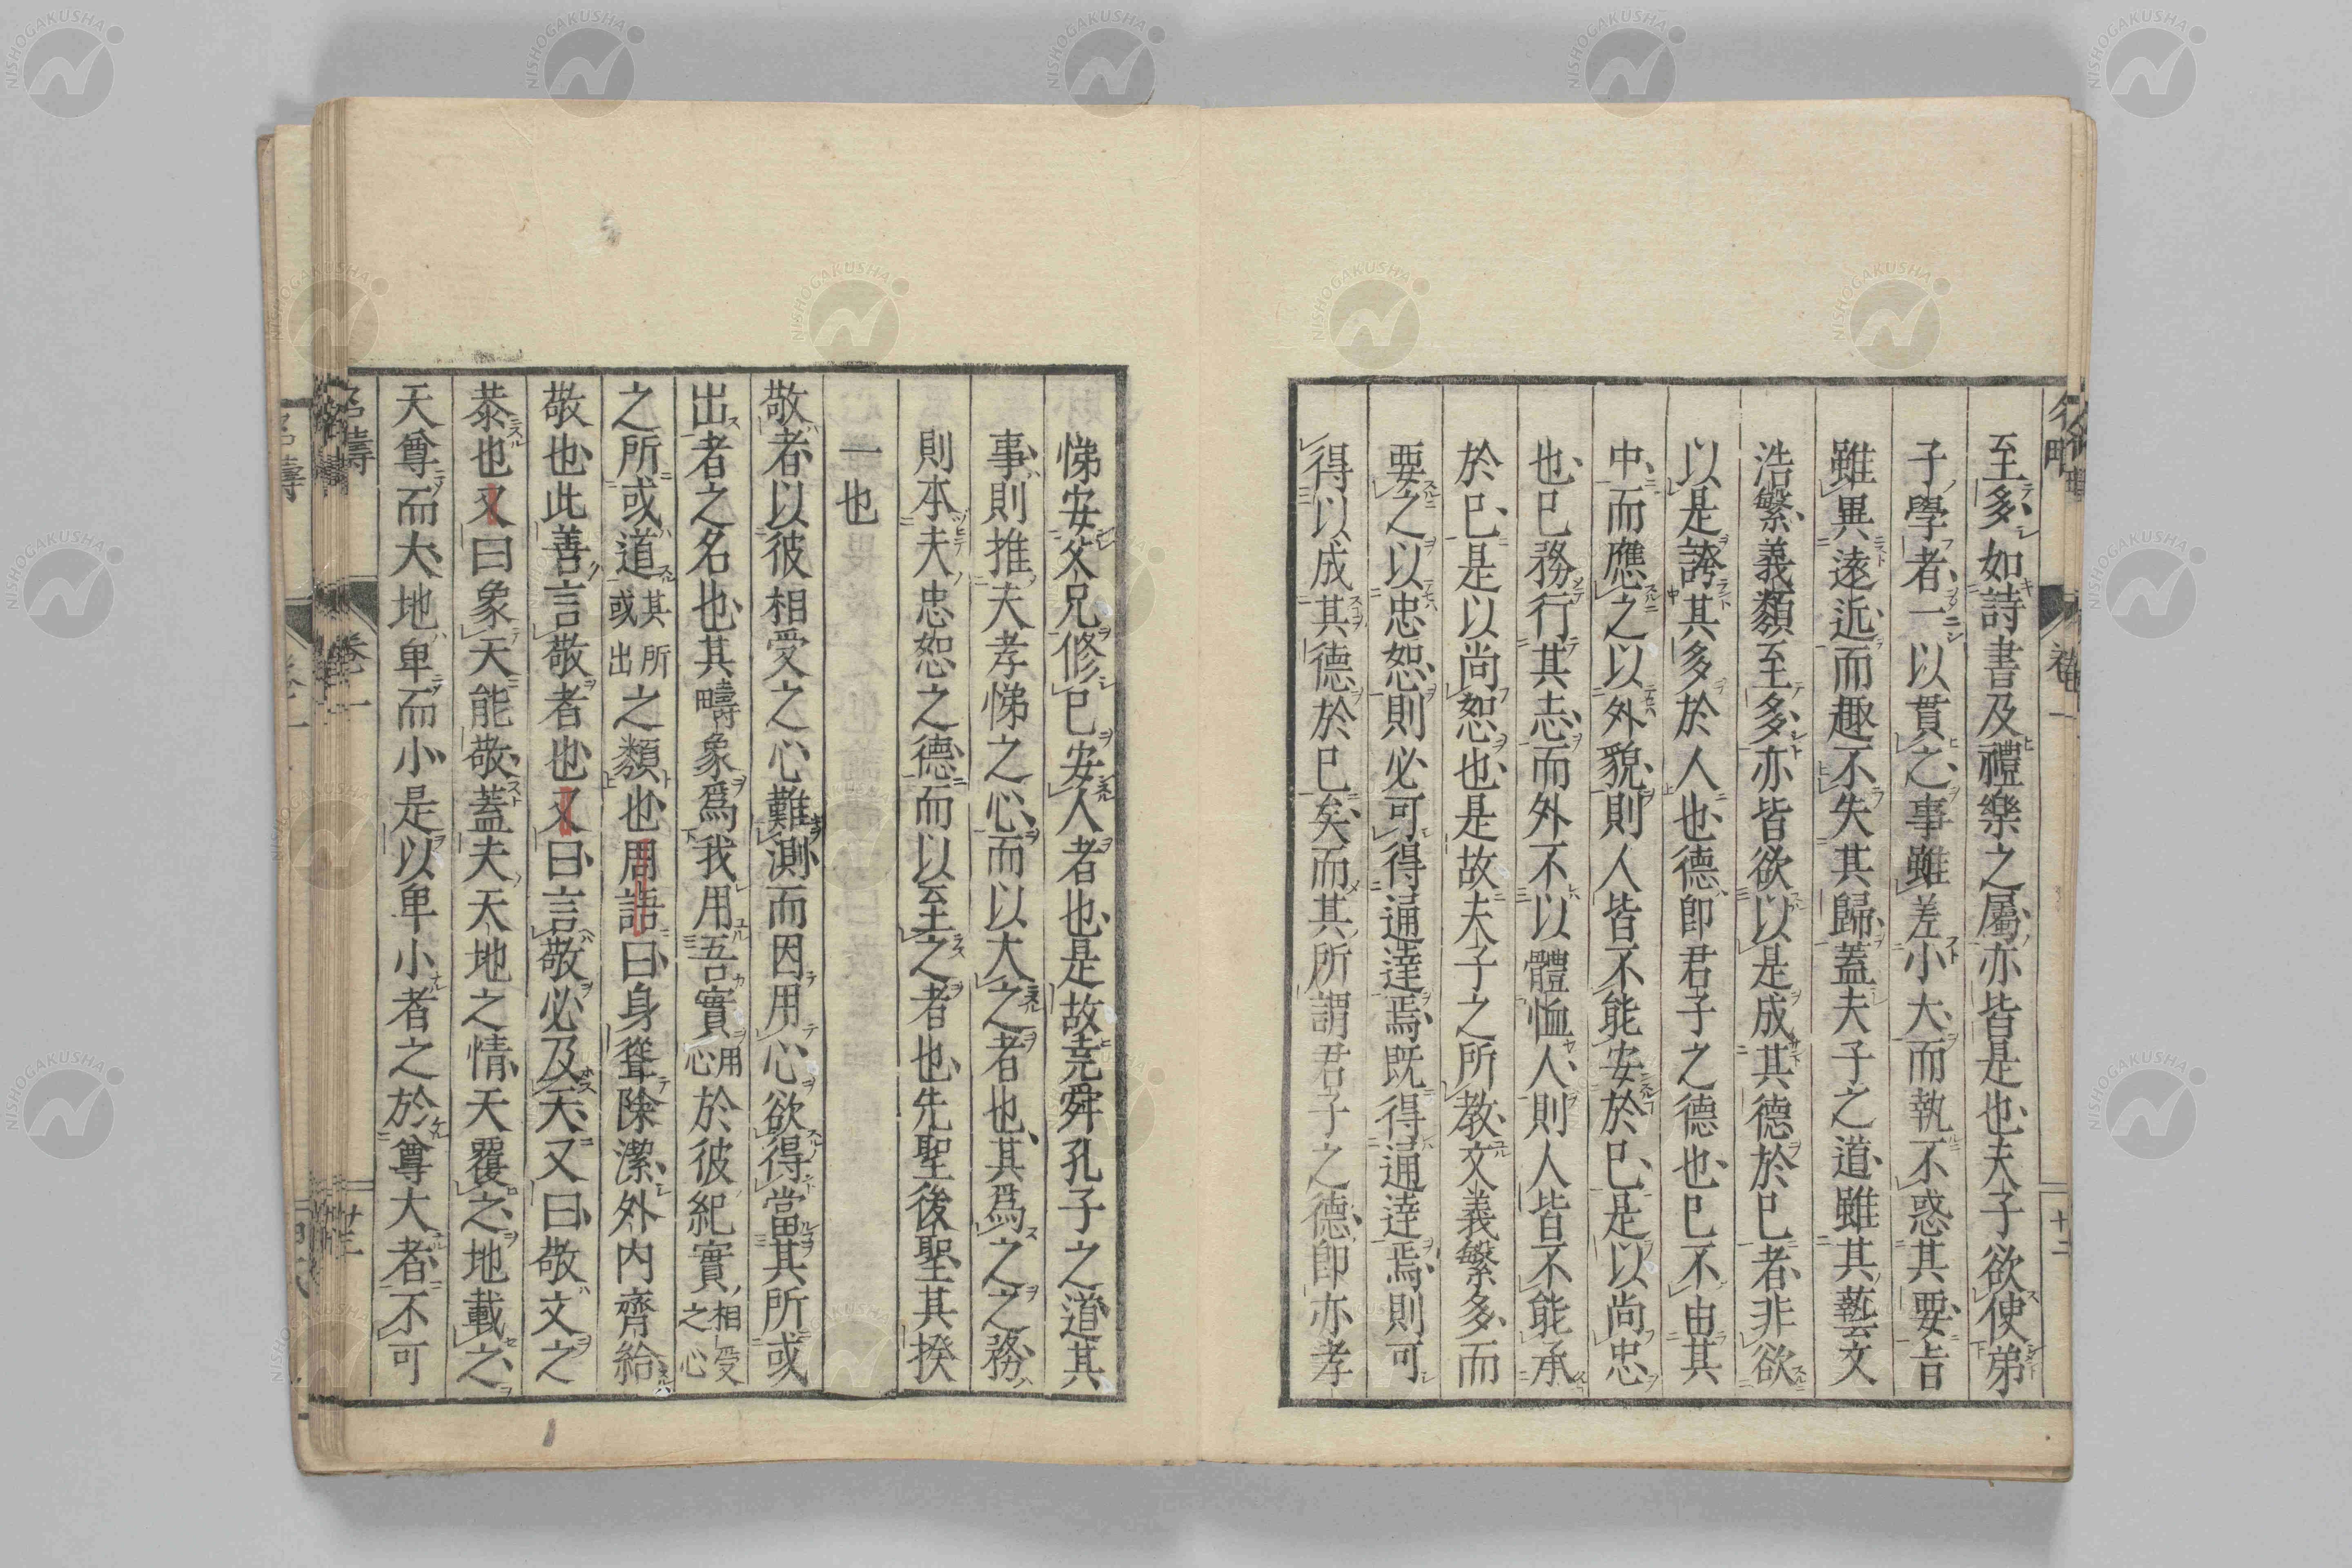 至多如詩書及禮樂之屬亦皆是也夫子欲使弟
子學者一以貫之事雖差小大而執不惑其要旨
雖異遠近而趣不失其歸蓋夫子之道雖其藝文
浩繁義類至多亦皆欲以是成其德於已者非欲
以是誇其多於人也德卽君子之德也已不由其
中而應之以外貌則人皆不能安於已是以尚忠
也已務行其志而外不以體恤人則人皆不能承
於已是以尚恕也是故夫子之所教文義繁多而
要之以忠恕則必可得通達焉既得通達焉則可
得以成其德於已矣而其所謂君子之德卽亦孝
悌安父兄修已安人者也是故堯舜孔子之道其
事則推夫孝悌之心而以大之者也其爲之之務
則本夫忠恕之德而以至之者也先聖後聖其揆
一也
敬者以彼相受之心難測而因用心欲得當其所或
出者之名也其疇象爲我用吾實用心於彼紀實相受之心
之所或道其所或出之類也周語曰身聳除潔外内齊給
敬也此善言敬者也又曰言敬必及天又曰敬文之
恭也又曰象天能敬蓋夫天地之情天覆之地載之
天尊而大地卑而小是以卑小者之於尊大者不可
名疇
卷一
十二
NISHOGAKUSHA